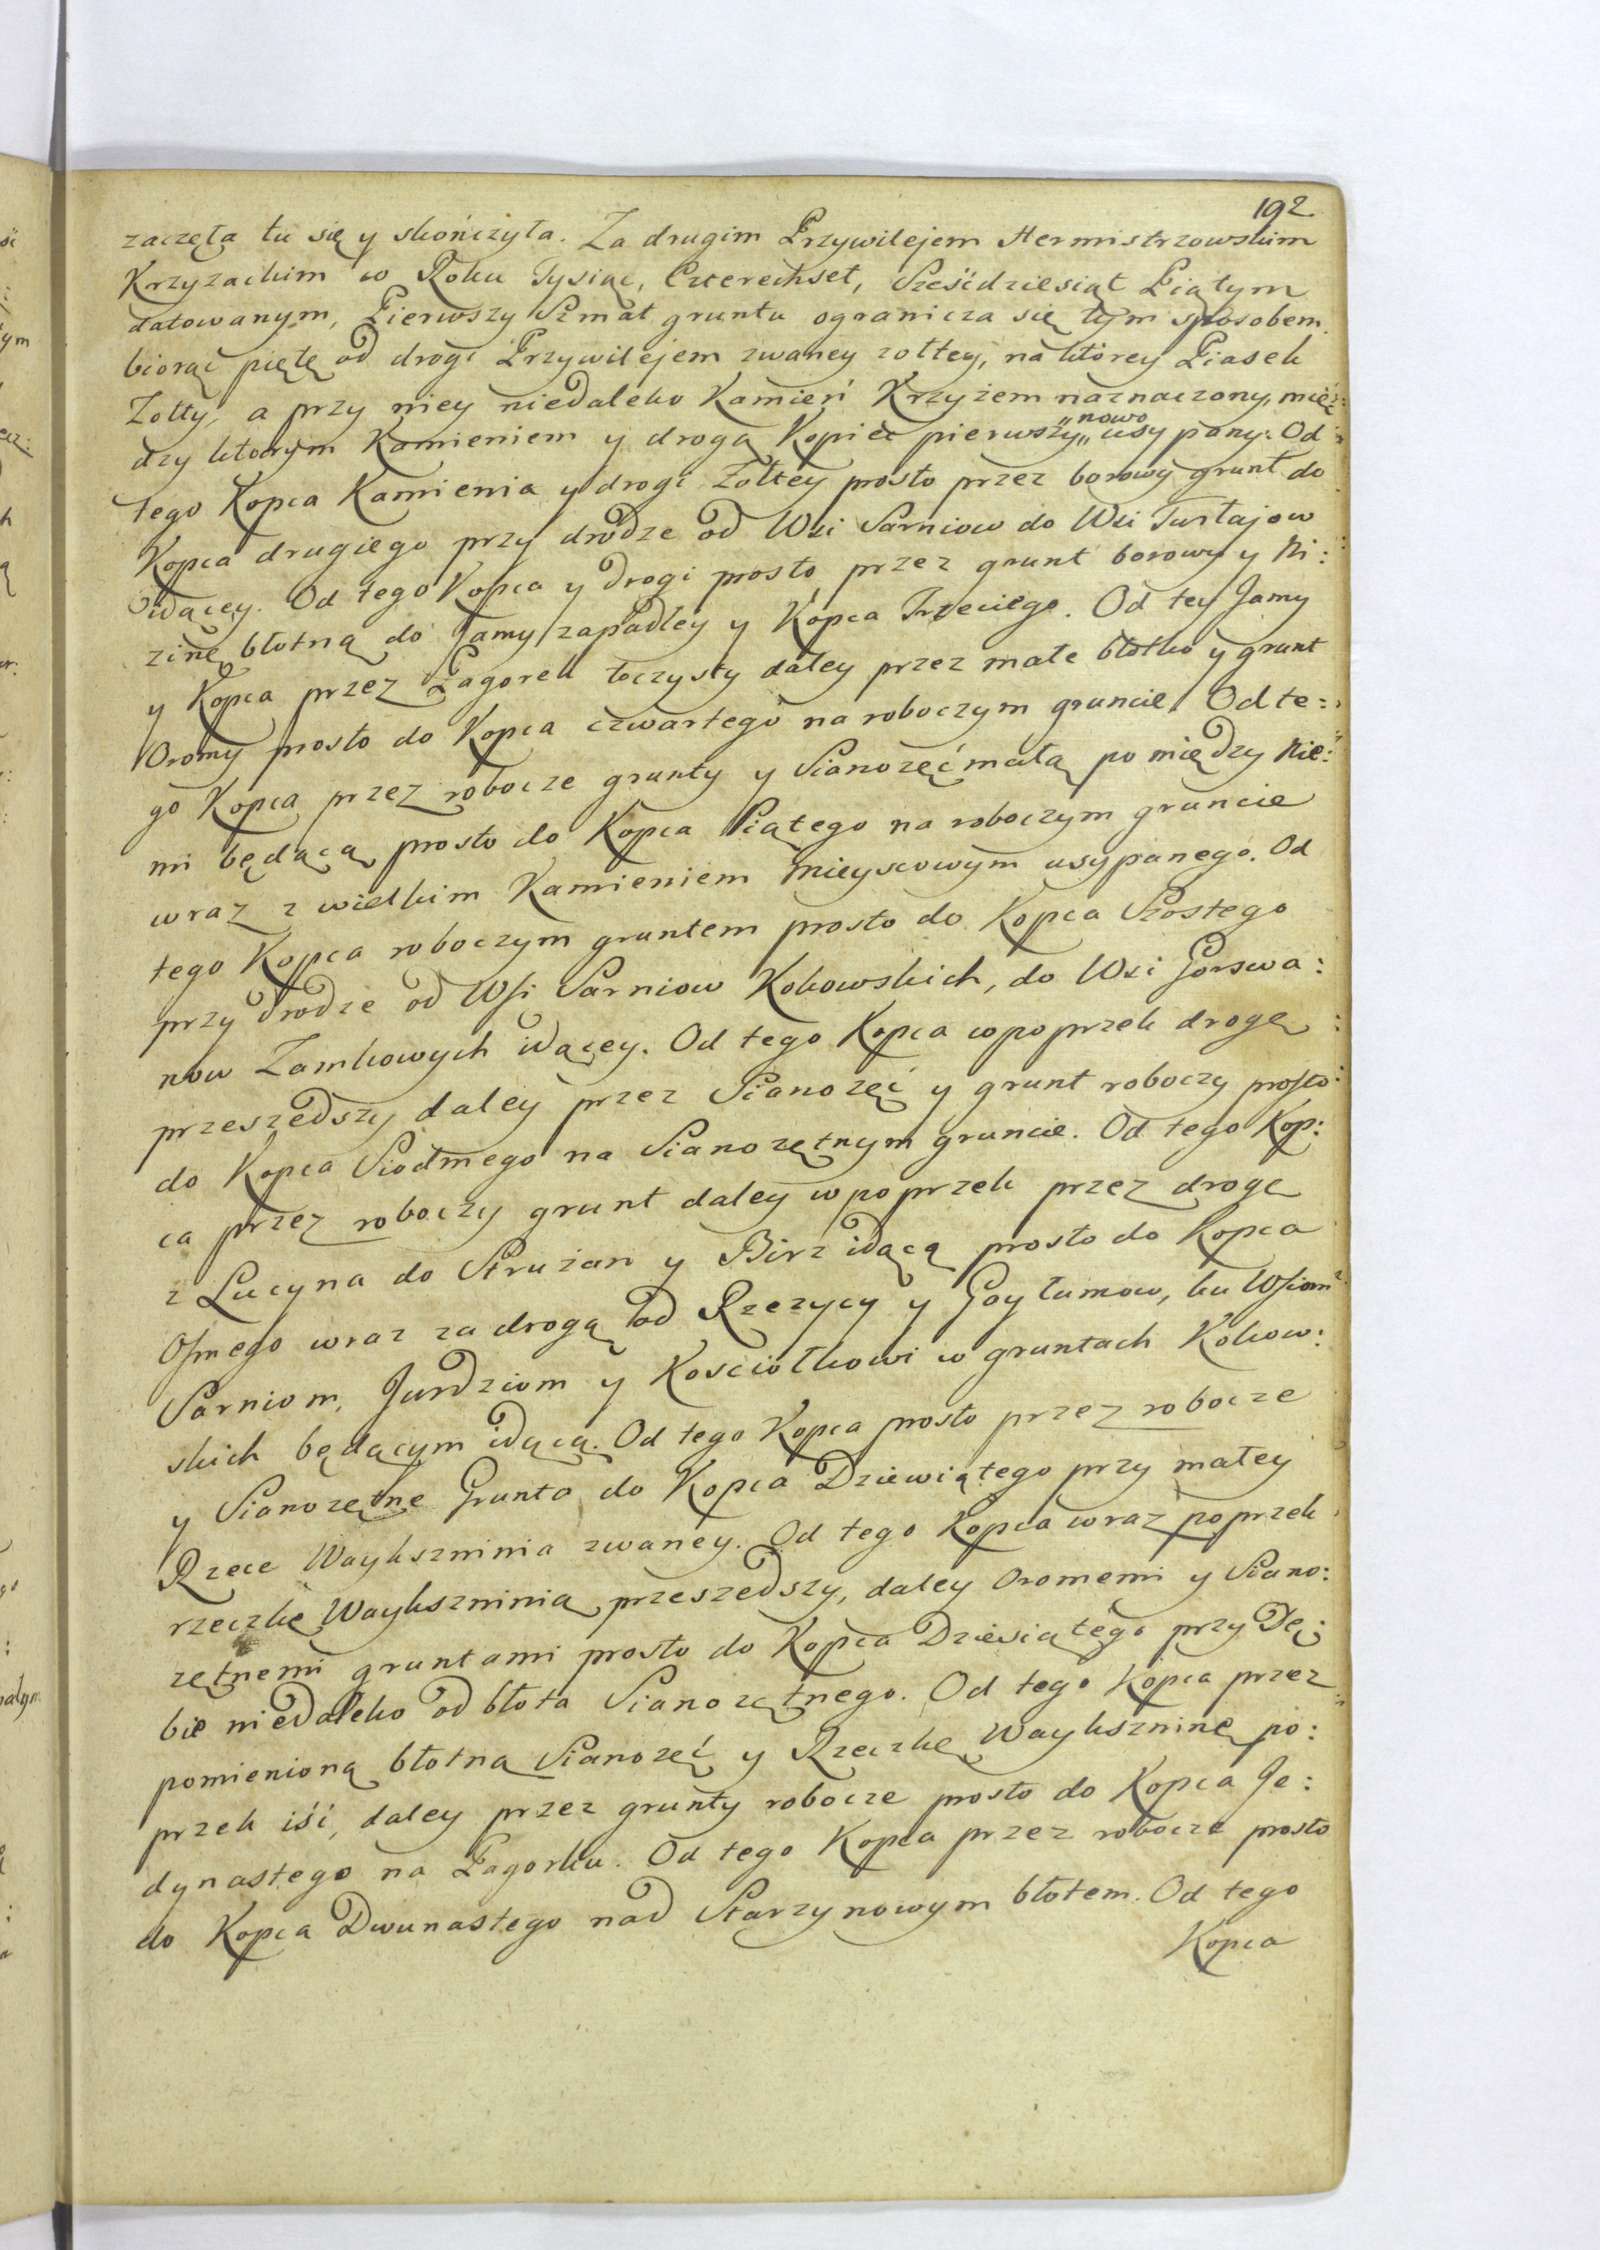 192.
zaczęła tu się y skończyła. Za drugim Przywilejem Hermistrzowskim
Krzyzackim w Roku Tysiąc, Czterechset, Sześćdziesiąt Piątym
datowanym, Pierwszy Szmat gruntu ogranicza się tym sposobem.
biorąc piętę od drogi Przywilejem zwaney zołtey, na którey Piasek
Zołty, a przy niey niedaleko Kamień Krzyżem naznaczony, mię:
dzy ktorym Kamieniem y drogą Kopiec pierwszy „nowo„ usypany. Od
tego Kopca Kamienia y drogi Zołtey prosto przez borowy grunt do
Kopca drugiego przy drodze od Wsi Sarniow do Wsi Turłajow
idącey. Od tego Kopca y drogi prosto przez grunt borowy y Ni:
zinę błotną do Jamy zapadłey y Kopca Trzeciego. Od tey Jamy
y Kopca przez Pagorek toczysty daley przez małe błotko y grunt
Oromy prosto do Kopca czwartego na roboczym gruncie. Od te:
go Kopca przez robocze grunty y Sianozęć małą pomiędzy Nie:
mi będącą prosto do Kopca Piątego na roboczym gruncie
wraz z wielkim Kamieniem mieyscowym usypanego. Od
tego Kopca roboczym gruntem prosto do Kopca Szostego
przy drodze od Wsi Sarniow Kokowskich, do Wsi Gorswa:
now Zamkowych idącey. Od tego Kopca wpoprzek drogę
przeszedszy daley przez Sianozęć y grunt roboczy prosto
do Kopca Siodmego na Sianozętnym gruncie. Od tego Kop:
ca przez roboczy grunt daley wpoprzek przez drogę
z Lucyna do Strużan y Birz idącą prosto do Kopca
Osmego wraz za drogą od Rzezycy y Goytumow, ku Wsiom
Sarniom, Jurdziom y Kosciołkowi w gruntach Kokow:
skich będącym idącą. Od tego Kopca prosto przez robocze
y Sianozętne Grunta do Kopca Dziewiątego przy małey
Rzece Waykszninia zwaney. Od tego Kopca wraz poprzek
rzeczkę Waykszninią przeszedszy, daley Oromemi y Siano:
zętnemi gruntami prosto do Kopca Dziesiątego przy Dę:
bie niedaleko od błota Sianozętnego. Od tego Kopca przez
pomienioną błotną Sianozęć y Rzeczkę Wayksźninę po:
przek iść, daley przez grunty robocze prosto do Kopca Je:
dynastego na Pagorku. Od tego Kopca przez robocze prosto
do Kopca Dwunastego nad Starzynowym błotem. Od tego
Kopca